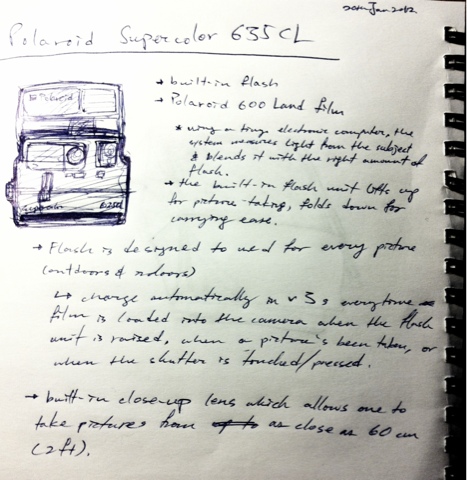 20th Jan 2012
Polaroid Supercolor 635CL
Polaroid
→ built-in flash
→ Polaroid 600 Land film
* using a tiny electronic computer, the
system measures light from the subject
& blends it with the right amount of
flash.
→ the built-in flash unit lifts up
for picture-taking, folds down for
carrying ease.
635CL
→ Flash is designed to used for every picture
(outdoors & indoors)
↳ charge automatically in 3s everytime
film is loaded into the camera when the flash
unit is raised, when a picture's been taken, or
when the shutter is touched/pressed.
→ built-in close-up lens which allows one to
take pictures from as close as 60 cm
(2ft).